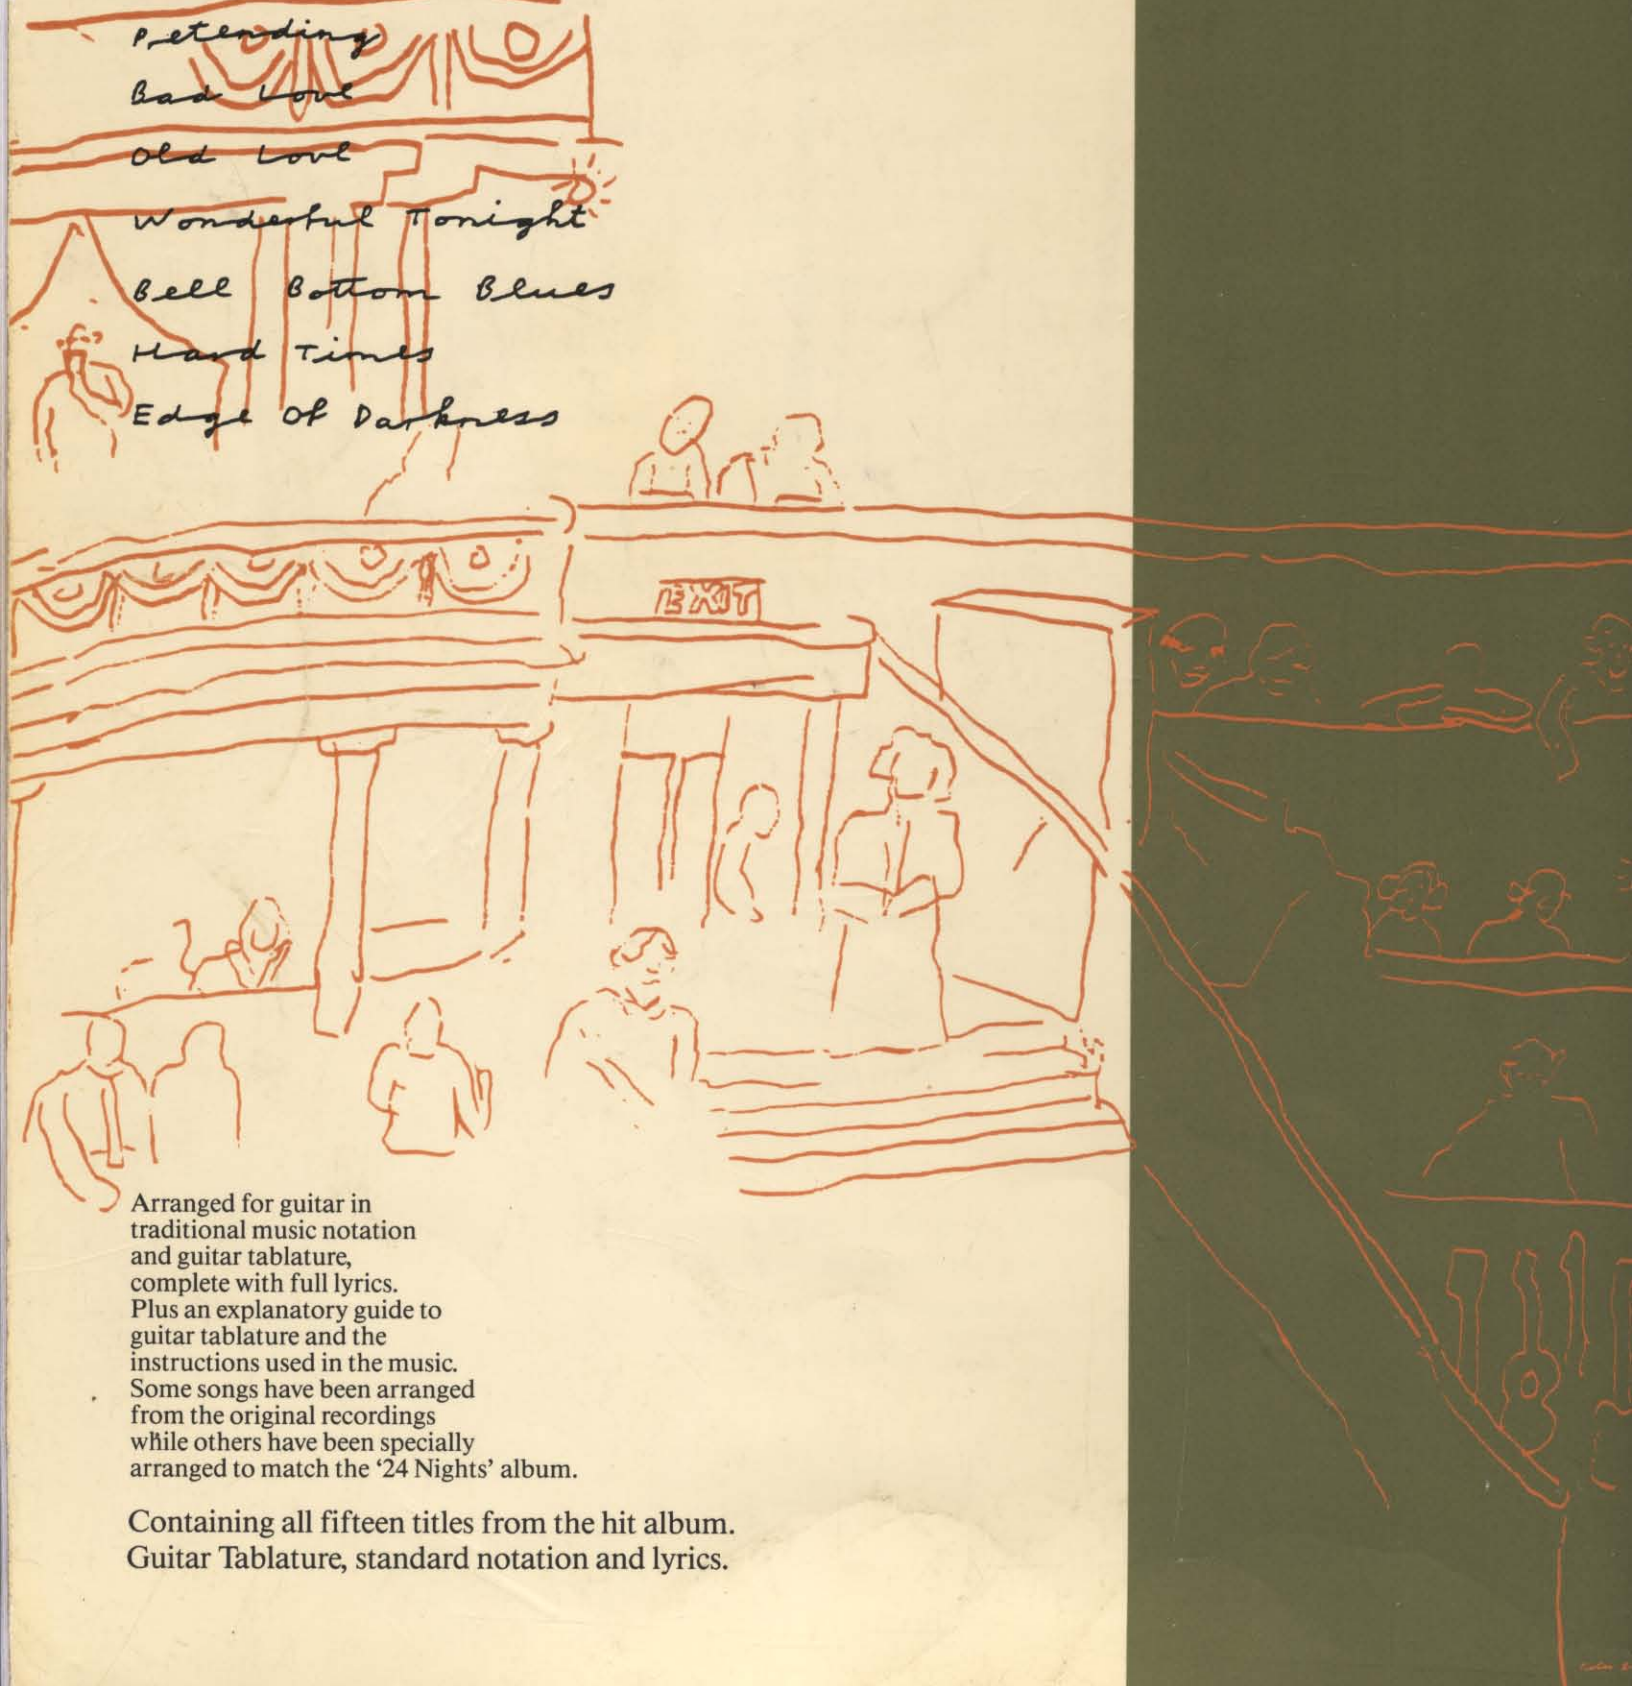 Petending
Bad Love
Old Love
Wonderful Tonight
Bell Bottom Blues
Hard Times
Edge Of Darkness
EXIT
Arranged for guitar in
traditional music notation
and guitar tablature,
complete with full lyrics.
Plus an explanatory guide to
guitar tablature and the
instructions used in the music.
Some songs have been arranged
from the original recordings
while others have been specially
arranged to match the ‘24 Nights’ album.
Containing all fifteen titles from the hit album.
Guitar Tablature, standard notation and lyrics.